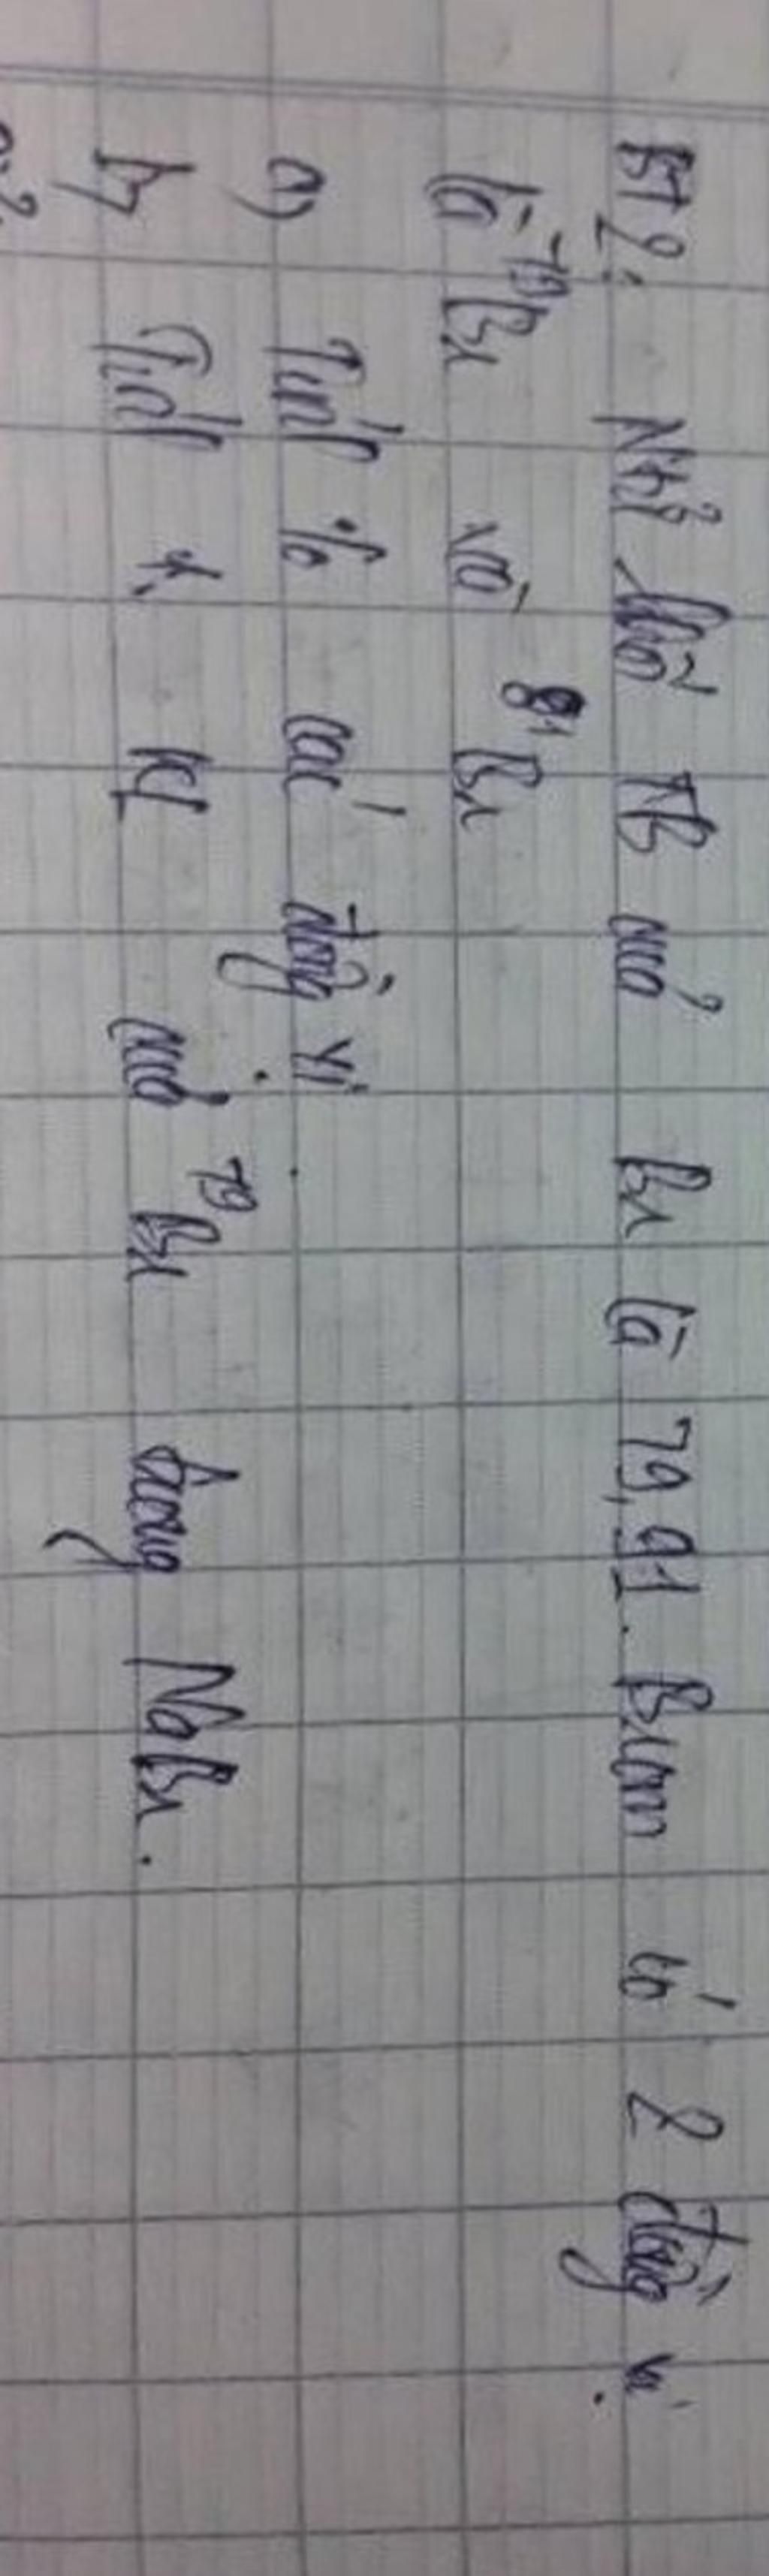 BT2: NTK TB của Br là 79,91. Brom có 2 đồng vị
là ⁷⁹Br và ⁸¹Br
a) Tính % các đồng vị.
b, Tính % KL của ⁷⁹Br trong NaBr.